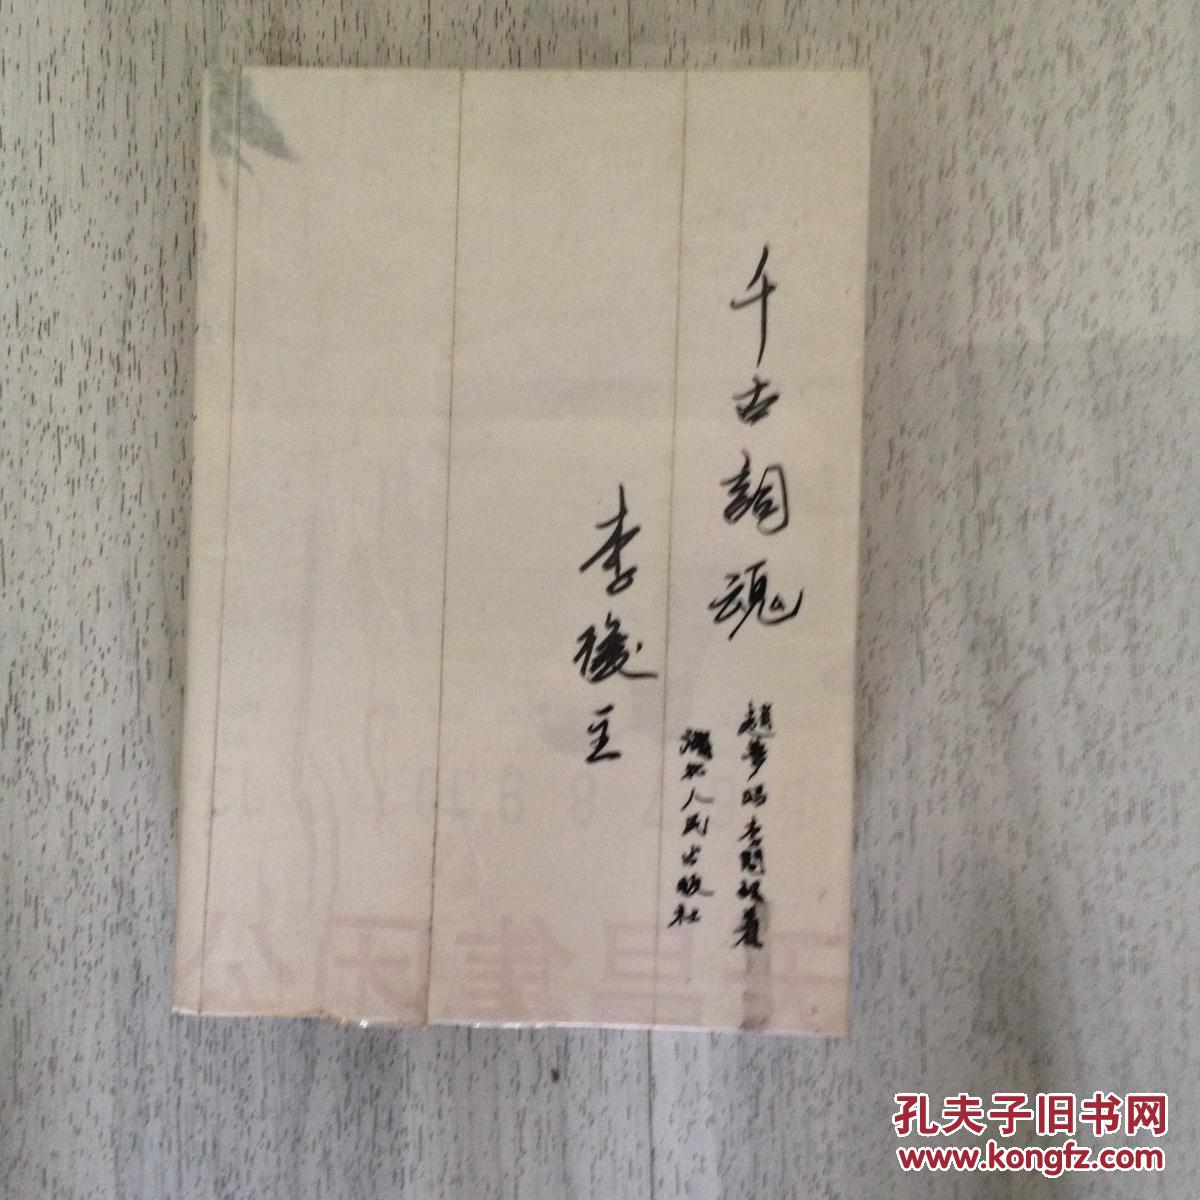 千古詞魂
李後主
趙夢昭 李問韶著
湖北人民出版社
孔夫子旧书网
www.kongfz.com